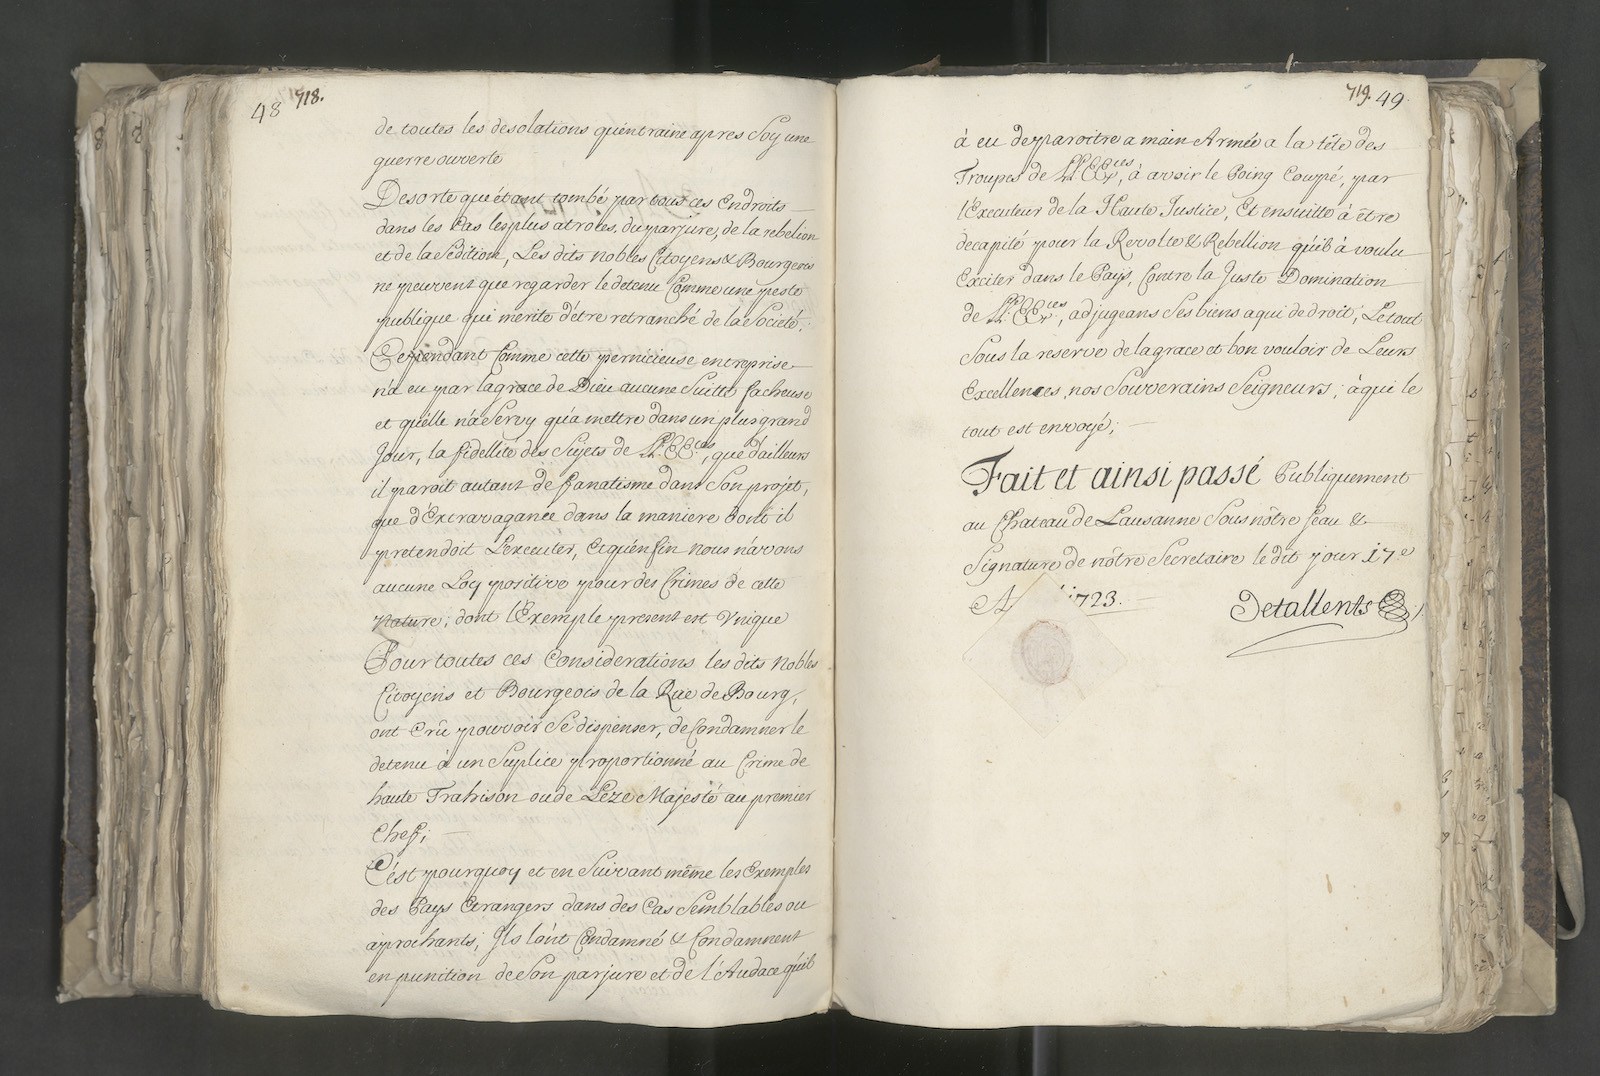 48 718.
de toutes les desolations qu'entraine apres Soy une
guerre ouverte
Desorte qu'étant tombé par tous ces Endroits
dans les Cas les plus atroces, du parjure, de la rebelion
et de la Sédition, Les dits nobles Citoyens & Bourgeois
ne peuvent que regarder le detenu Comme une peste
publique qui merite d'être retranché de la Societé.
Cependant Comme cette pernicieuse entreprise
n'a eu par la grace de Dieu aucune Suitte facheuse
et qu'elle n'a Servy qu'a mettre dans un plus grand
Jour, la fidellité des Sujets de LL. EE.ces, que d'ailleurs
il paroit autant de fanatisme dans Son projet,
que d'Extravagance dans la maniere dont il
pretendoit L'executer, Et qu'enfin nous n'avons
aucune Loy positive pour des Crimes de cette
nature; dont l'Exemple present est Unique
Pour toutes ces Considerations les dits Nobles
Citoyens et Bourgeois de la Rüe de Bourg,
ont Crû pouvoir Se dispenser, de Condamner le
detenu à un Suplice proportionné au Crime de
haute Trahison ou de Léze Majesté au premier
Chef;
C'est pourquoy et en Suivant même les Exemples
des Pays Etrangers dans des Cas Semblables ou
aprochants; Ils l'ont Condamné & Condamnent
en punition de Son parjure et de l'Audace qu'il
719. 49
à eu de paroître a main Armée a la tête des
Troupes de LL. EE.ces, à avoir le Poing Coupé, par
l'Executeur de la Haute Justice, Et ensuitte à être
decapité pour la Revolte & Rebellion qu'il à voulu
Exciter dans le Pays, Contre la Juste Domination
de LL. EE.ces, adjugeans Ses biens a qui de droit, Le tout
Sous la reserve de la grace et bon vouloir de Leurs
Excellences nos Souverains Seigneurs, à qui le
tout est envoyé;
Fait et ainsi passé Publiquement
au Chateau de Lausanne Sous nôtre Seau &
Signature de nôtre Secretaire le dit jour 17e
A 1723.
Detallents